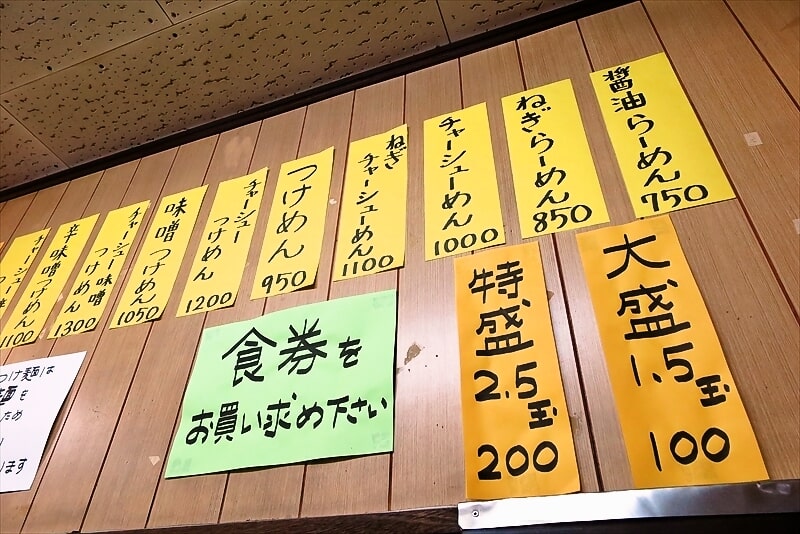 醤油らーめん
750
ねぎらーめん
850
チャーシューめん
1000
ねぎ
チャーシューめん
1100
つけめん
950
チャーシュー
つけめん
1200
味噌つけめん
1050
チャーシュー味噌
つけめん
1300
辛味噌つけめん
1100
チャーシュー
大盛
1.5玉
100
特盛
2.5玉
200
食券を
お買い求め下さい
つけ麺は
麺を
ため
ます